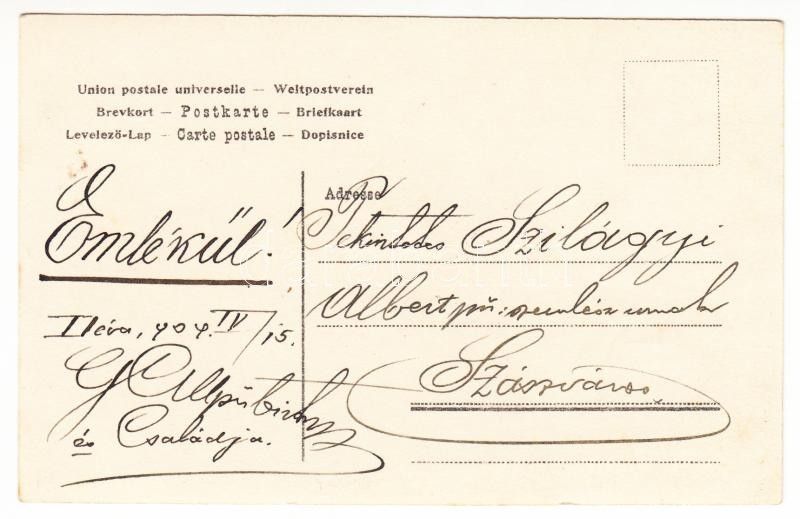 Union postale universelle — Weltpostverein
Brevkort — Postkarte — Briefkaart
Levelező-Lap — Carte postale — Dopisnice
Adresse
Emlékül!
Tekintetes Szilágyi
Albert pü: szemlész urnak
Szászváros.
Illéva, 909 IV/15.
és Családja.